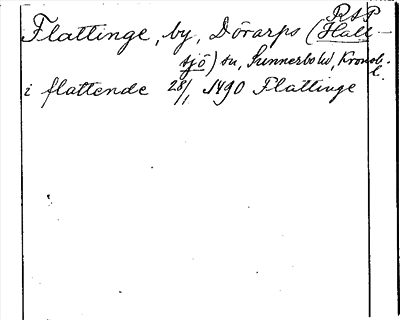 RAP
Flattinge, by, Dörarps (Hall-
sjö) sn, Sunnerbo hd, Kronob. l.
i flattende 28/1 1490 Flattinge